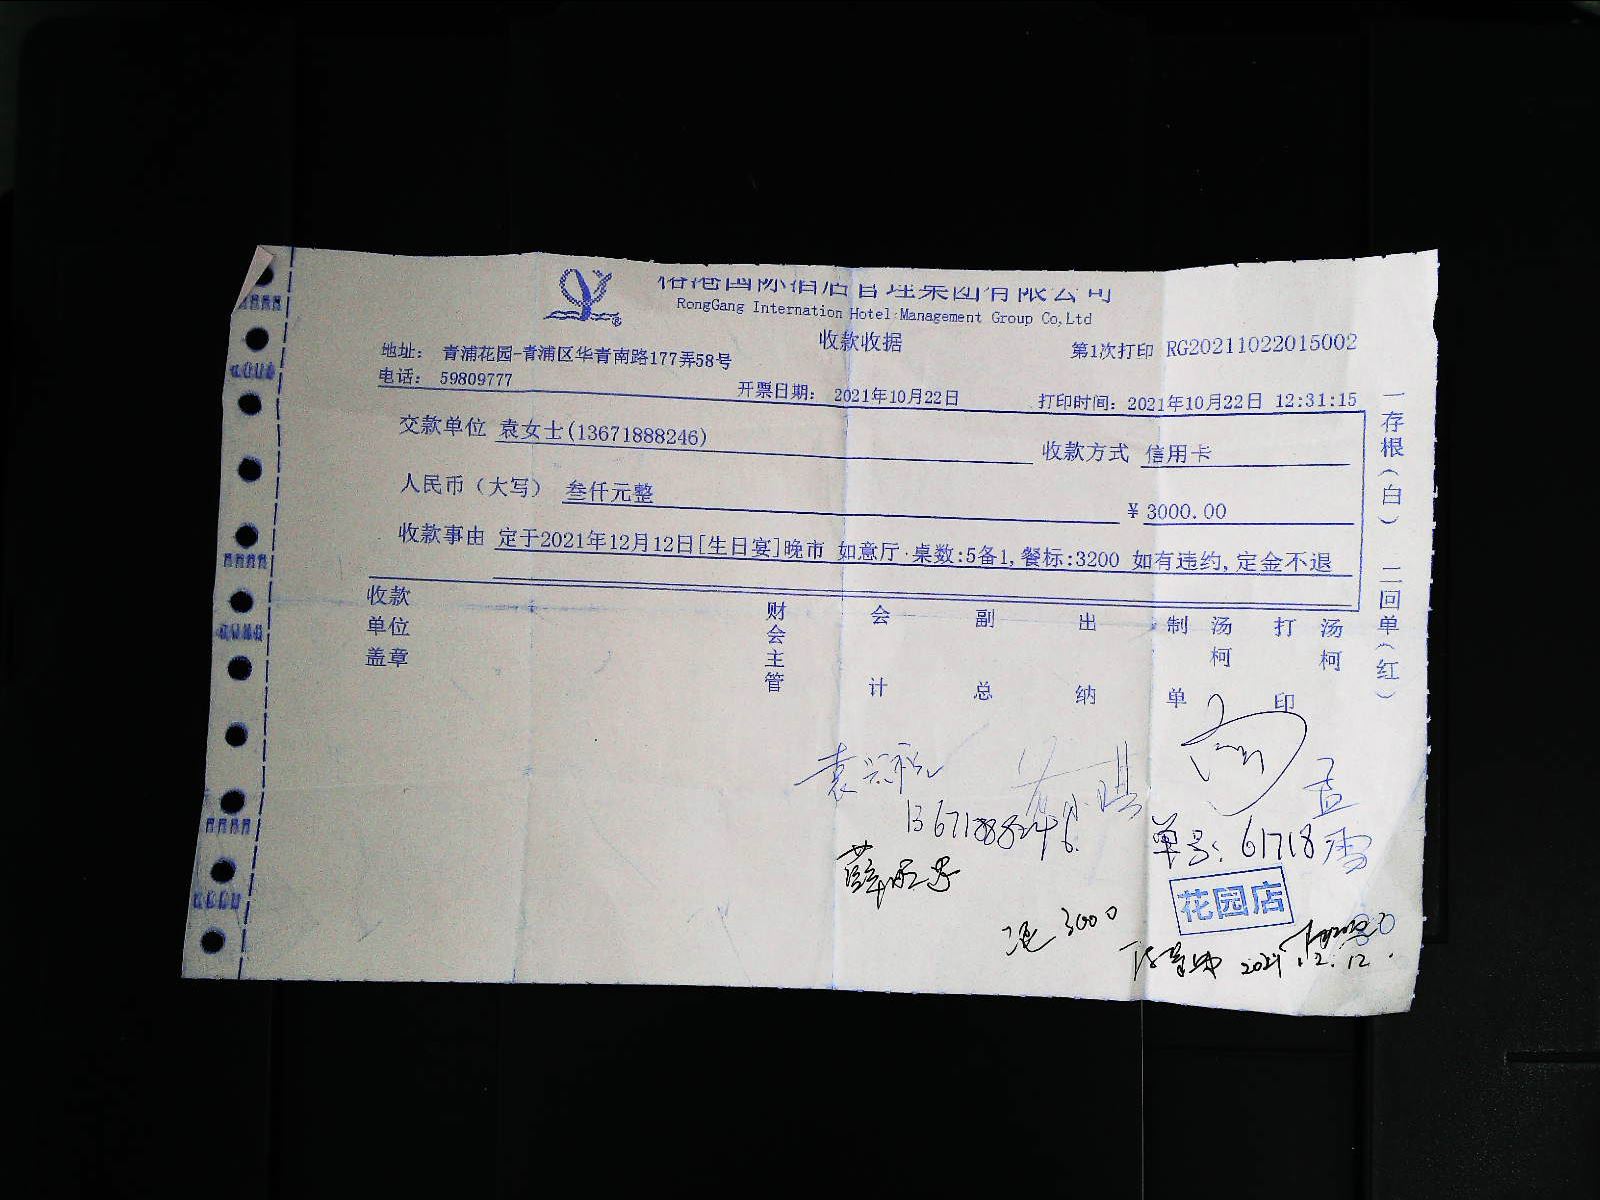 国际酒店管理集团有限公司
RongGang Internation Hotel Management Group Co,Ltd
收款收据
第1次打印 RG20211022015002
地址: 青浦花园-青浦区华青南路177弄58号
电话: 59809777
开票日期: 2021年10月22日
打印时间: 2021年10月22日 12:31:15
交款单位 袁女士(13671888246)
收款方式 信用卡
人民币(大写) 叁仟元整
¥3000.00
收款事由 定于2021年12月12日[生日宴]晚市 如意厅·桌数:5备1,餐标:3200 如有违约,定金不退
收款单位盖章
财会主管
会计
副总
出纳
制单 汤柯
打印 汤柯
一存根(白) 二回单(红)
13671888246
单号: 61718
孟雪
花园店
3000
2021.12.12.